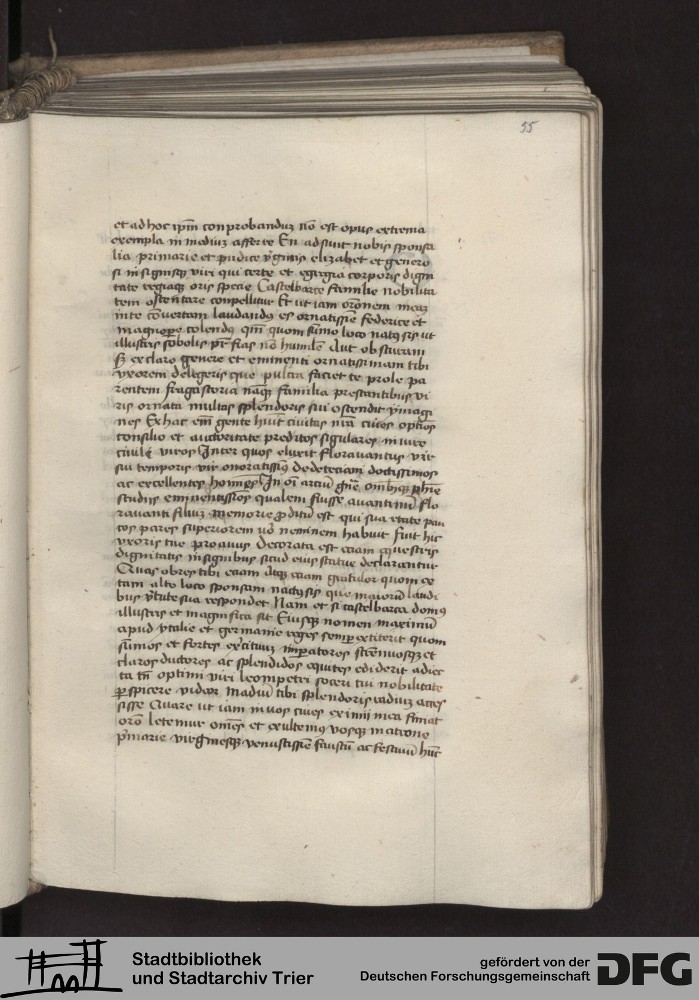 55
et ad hoc ipm̄ conprobanduꝫ nō est opus extrema
exempla in mediuꝫ afferre En adsunt nobis sponsa
lia primarie et pudice v̓ginis elizabet et genero
si insignisqꝫ viri qui certe et egregia corporis digni
tate regiaqꝫ oris specie Castelbarce familie nobilita
tem ostentare conpellitur Et ut iam orōnem meaꝫ
in te cōvertam laudandus es ornatissīe federice et
magnopere colendus qm̄ quom sūmo loco natus sis ut
illustris sobolis pr̄ fias nō humilē Aut obscuram
sꝫ ex claro genere et eminenti ornatissimam tibi
vxorem delegeris que pulcra faciet te prole pa
rentem fragastoria naqꝫ familia prestantibus vi
ris ornata multas splendoris sui ostendit ymagi
nes Ex hac em̄ gente huīt civitas nr̄a cives optīos
consilio et auctoritate preditos sīgulares in iure
civili viros Inter quos eluxit Floravantus vir
sui temporis vir onoratissimꝰ
ac excellentes homīes In oī arciū gn̄e
studiis eminentissīos qualem fuisse avantinū Flo
ravanti filiuꝫ memorie ꝓditū est qui sua etate pau
cos pares superiorem vō neminem habuit fuit hic
vxoris tue proavus Decorata est eciam equestris
dignitatis insignibus sicud eius statue declarantur
Quas ob res tibi eciam atqꝫ eciam gratulor quom ce
tam alto loco sponsam nactus sis que maiorū laudi
bus v̓tute sua respondet Nam et si castelbarca domꝰ
illustris et magnifica sit Eiusqꝫ nomen maximū
apud ytalie et germanie reges semper extiterit quom
sūmos et fortes exꝰcituuꝫ imperatores strēnuosqꝫ et
claros ductores ac splendidos equites ediderit adiec
ta tn̄ optimi viri leompetri soceri tui nobilitate
ꝑspicere videor Maduū tibi splendoris radiuꝫ acces
sisse Quare ut iam in vos cives eximii mea finiat
orō letemur om̄es et exultemꝰ vosqꝫ matrone
pͥmarie virginesqꝫ venustissīe faustū ac festiuū hūc
Stadtbibliothek
und Stadtarchiv Trier
gefördert von der
Deutschen Forschungsgemeinschaft
DFG